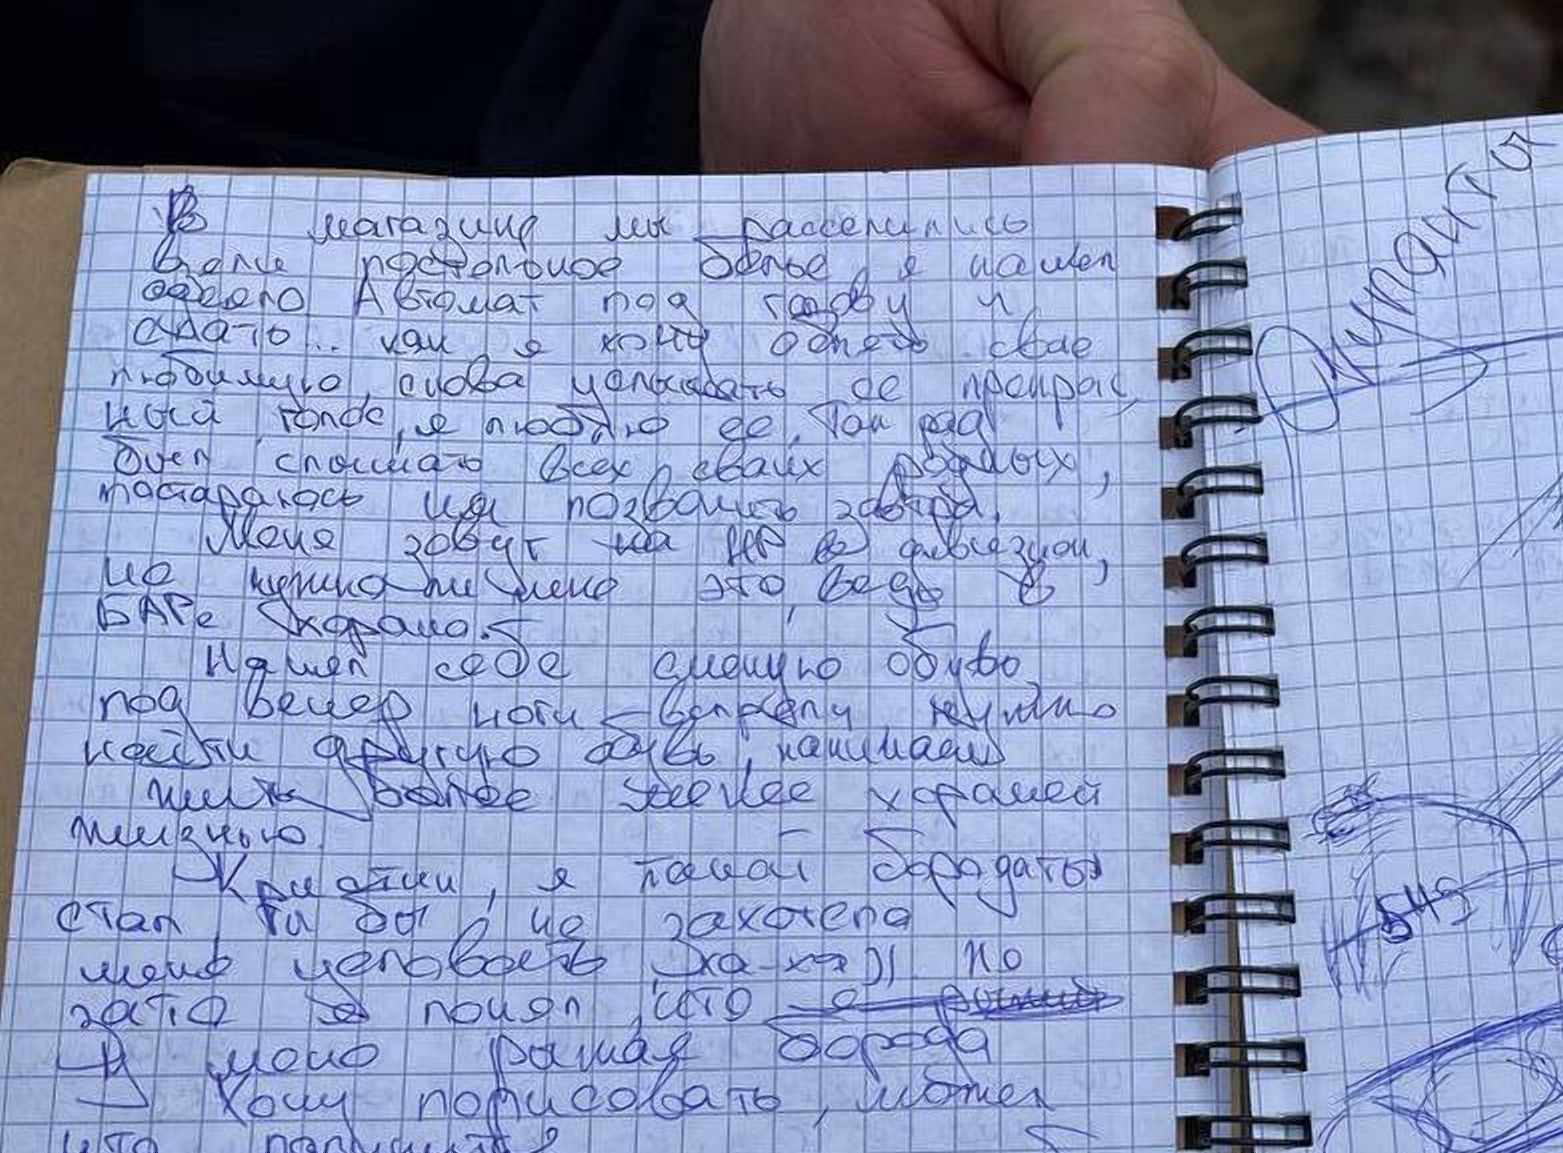 В магазине мы расселились
взяли постельное белье, я нашел
одеяло. Автомат под голову и
спать... как я хочу обнять свою
любимую, снова услышать ее прекрас,
ный голос, я люблю ее. Так рад
был слышать всех сваих родных,
постараюсь им позвонить завтра.
Меня зовут на НП в
но нужно ли мне это, ведь в
БАРе харашо.
Нашел себе сменую обувь,
под вечер ноги вспрели нужно
найти другую обувь, начинаем
жить более менее харашей
жизнью.
Кристин, я такой бородаты
стал, ти бы не захотела
меня целовать (ха-ха)). Но
зато я понял, что
У меня рыжая борода
Хочу порисовать, может
что получится
Мурапитя